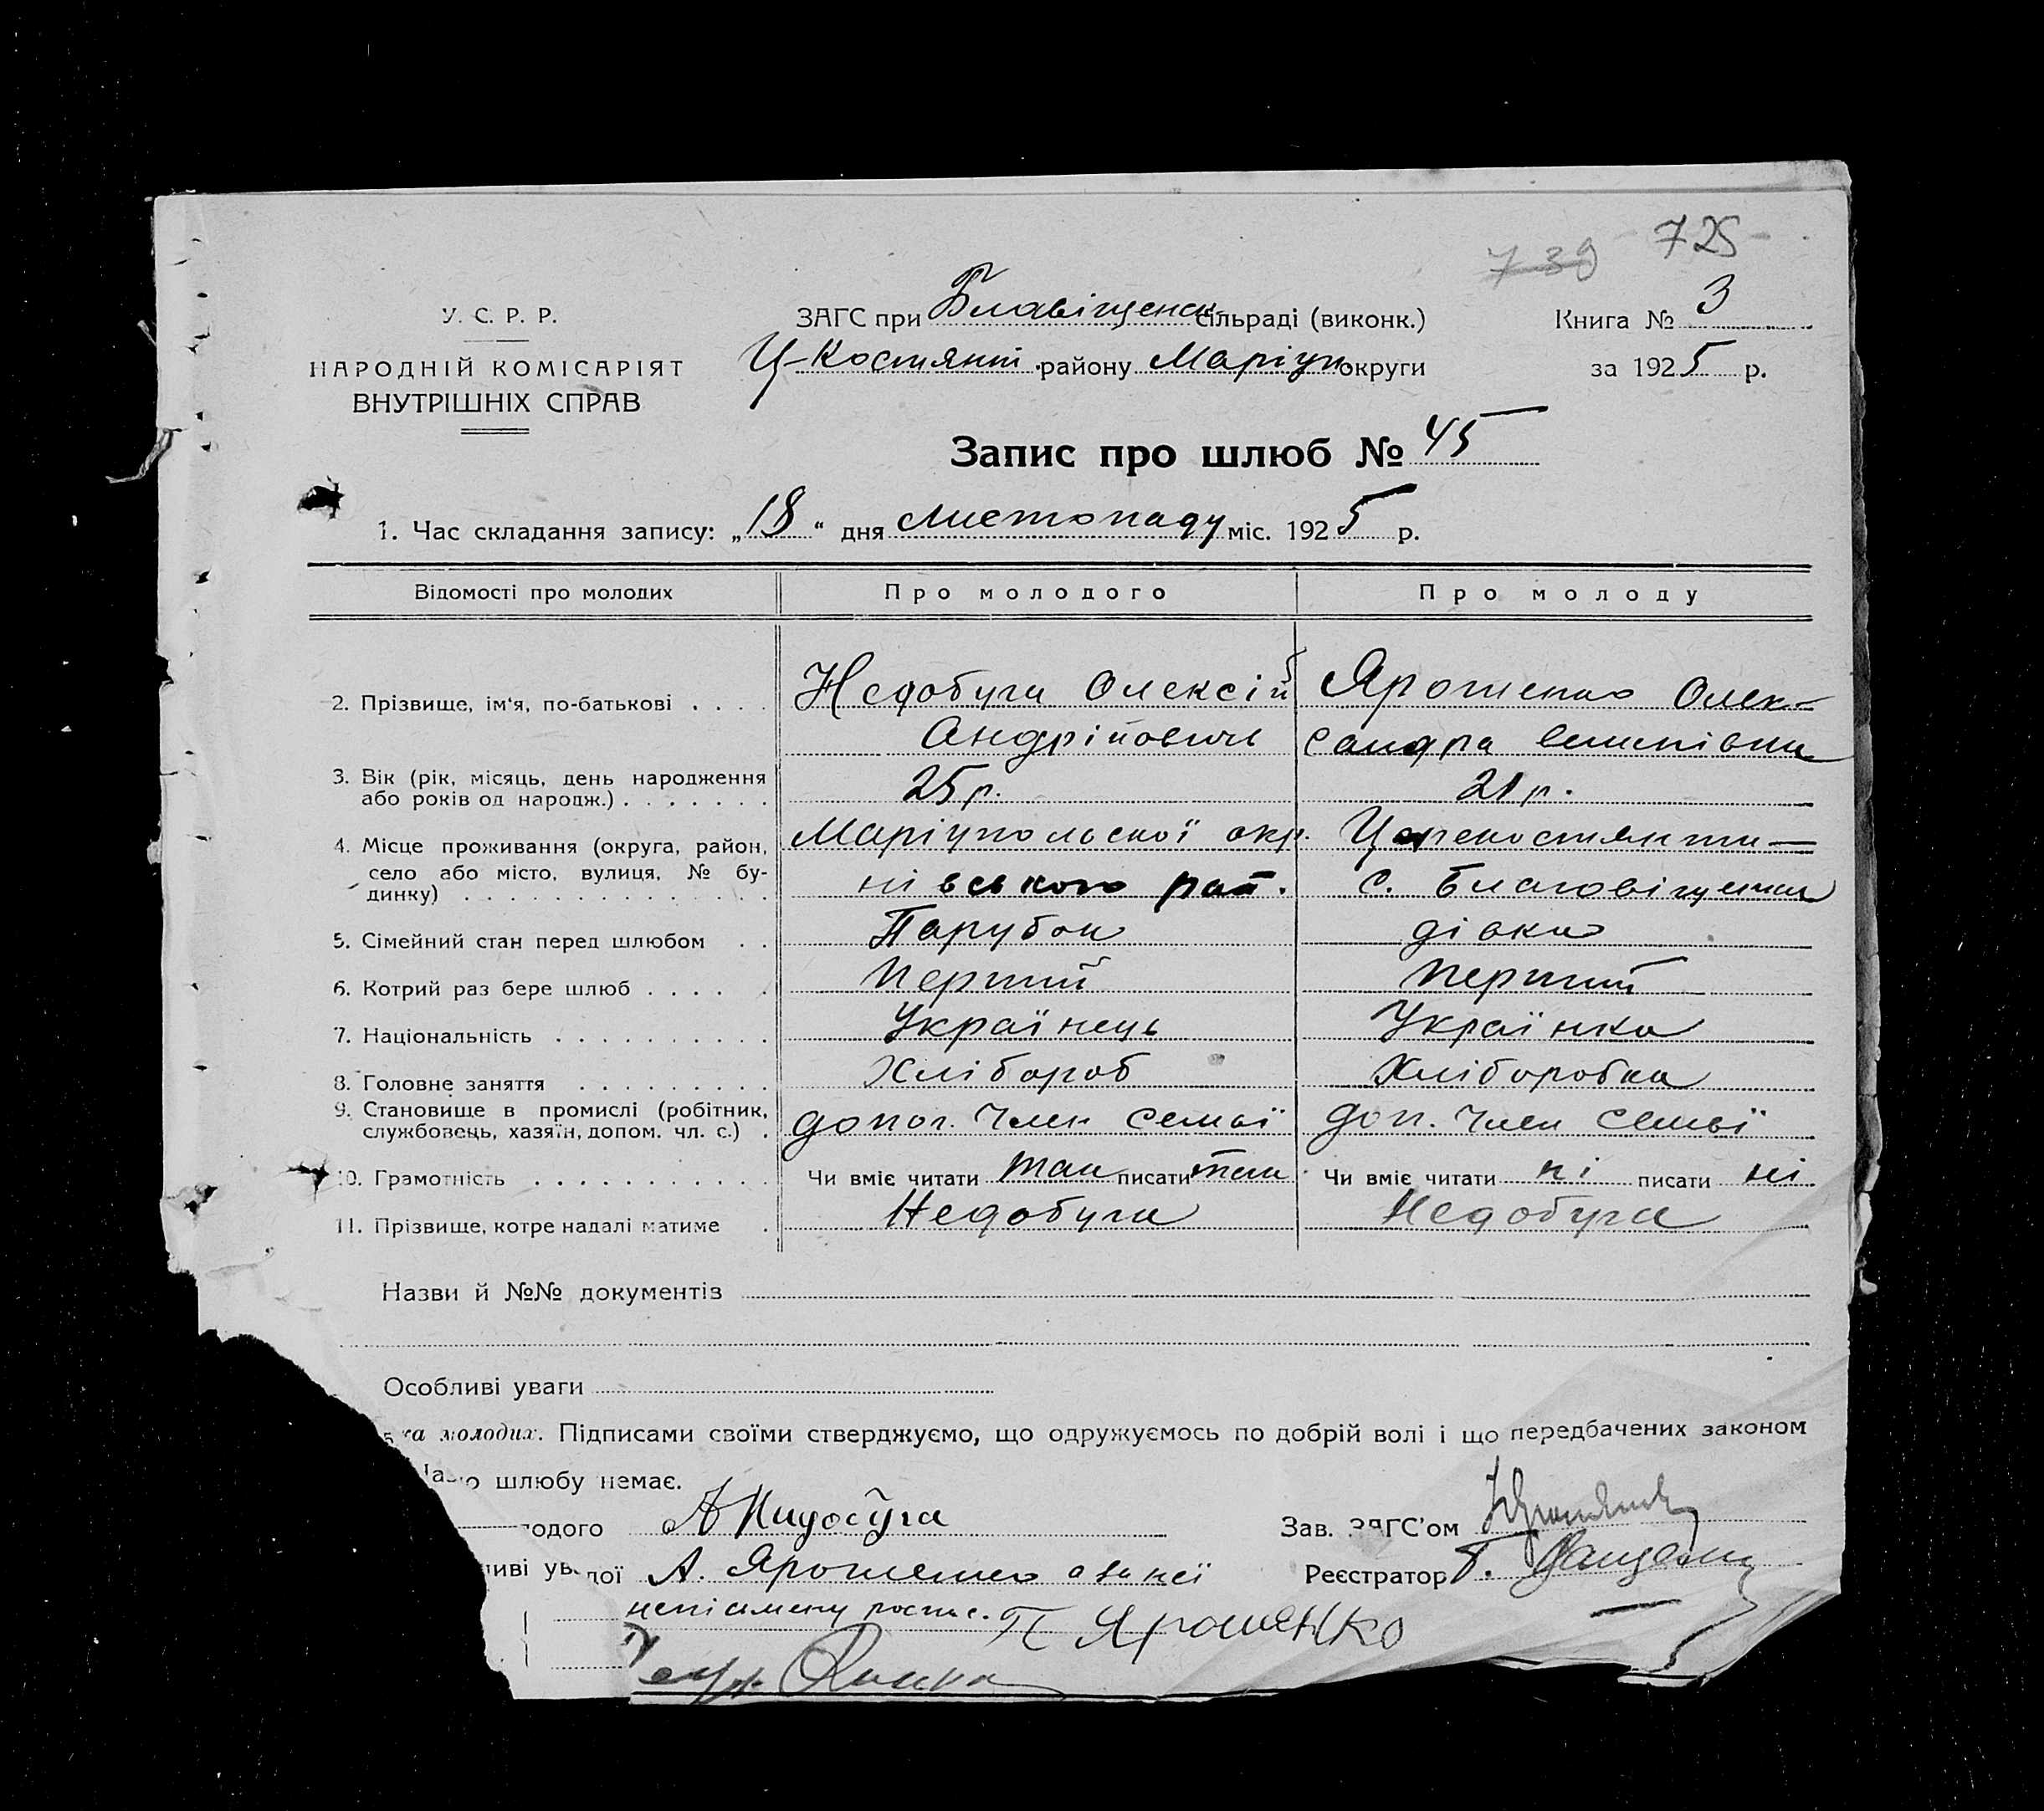 739 725
У. С. Р. Р.
НАРОДНІЙ КОМІСАРІЯТ
ВНУТРІШНІХ СПРАВ
ЗАГС при Благовіщенск сільраді (виконк.)
Ц-Костянт. району Маріуп округи
Книга № 3
за 1925 р.
Запис про шлюб № 45
1. Час складання запису: „18“ дня листопаду міс. 1925 р.
Відомості про молодих Про молодого Про молоду
2. Прізвище, ім'я, по-батькові . . . . Недобуга Олексій Ярошенко Олек-
Андрійович сандра
3. Вік (рік, місяць, день народження
або років од народж.) . . . . . . . 25 р. 21 р.
4. Місце проживання (округа, район, Маріупольської окр. Царекостянти-
село або місто, вулиця, № бу- нівського рай. с. Благовіщенка
динку) . . . . . . . . . . . . . .
5. Сімейний стан перед шлюбом . . Парубок дівка
6. Котрий раз бере шлюб . . . . . Перший Перший
7. Національність . . . . . . . . . . Українець Українка
8. Головне заняття . . . . . . . . . Хлібороб Хліборобка
9. Становище в промислі (робітник,
службовець, хазяїн, допом. чл. с.) . допог. Член семьї доп. Член семьї
10. Грамотність . . . . . . . . . . . Чи вміє читати так писати так Чи вміє читати ні писати ні
11. Прізвище, котре надалі матиме . Недобуга Недобуга
Назви й №№ документів
Особливі уваги
ка молодих. Підписами своїми стверджуємо, що одружуємось по добрій волі і що передбачених законом
о шлюбу немає.
одого А Нидобуга Зав. ЗАГС'ом
ливі ув дої А. Ярошенко а за неї Реєстратор Г.
непісьмену роспис. П Ярошенко